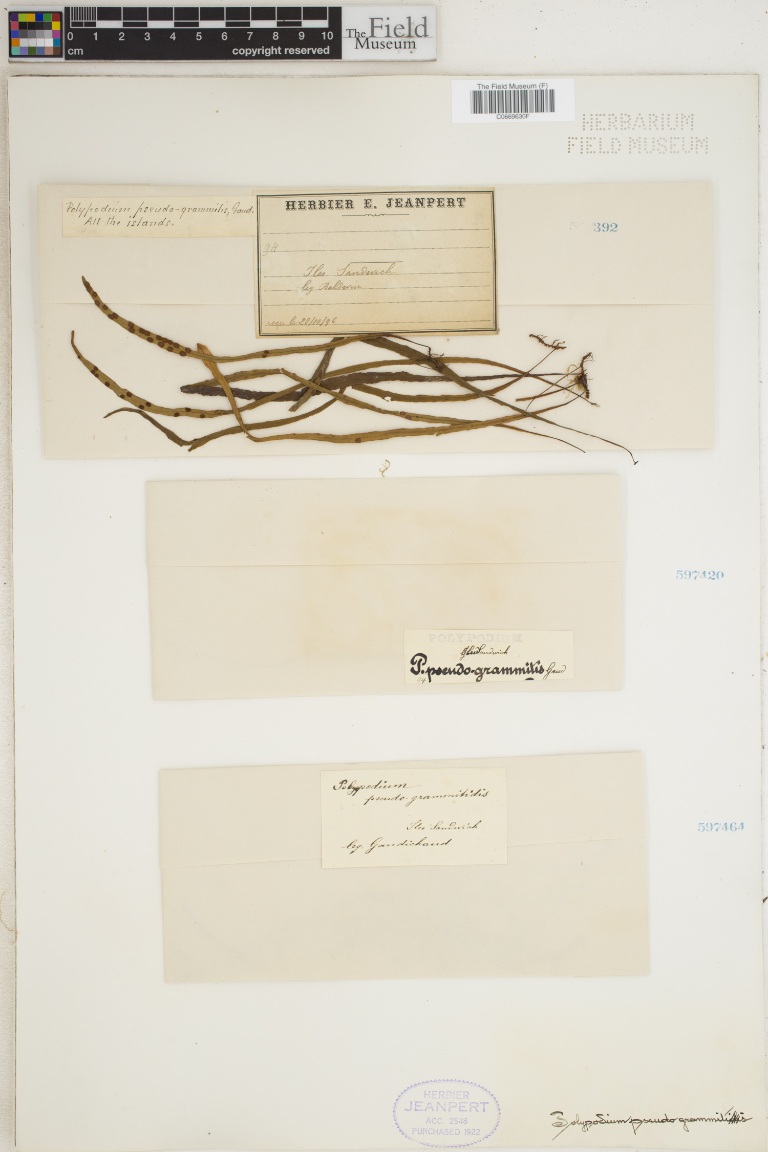 0 1 2 3 4 5 6 7 8 9 10
cm
copyright reserved
The Field
Museum
The Field Museum (F)
HERBARIUM
FIELD MUSEUM
Polypodium pseudo-grammitis, Gaud.
All the islands.
HERBIER E. JEANPERT
Iles Sandwich
leg
392
597420
POLYPODIUM
Iles Sandwich
P. pseudo-grammitis Gaud
Polypodium
pseudo-grammitidis
Iles Sandwich
leg. Gaudichaud
597464
HERBIER
JEANPERT
ACC. 2548
PURCHASED 1922
Polypodium pseudogrammitis